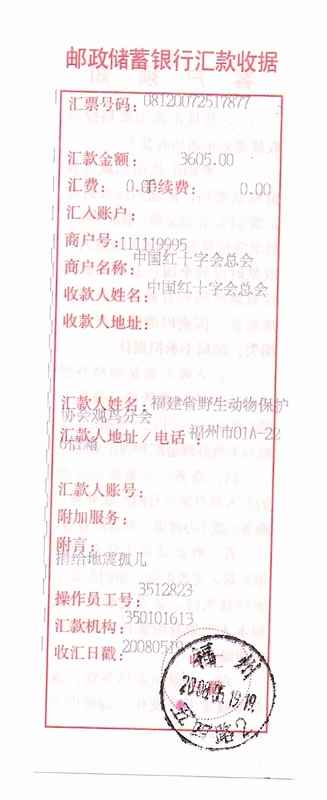 邮政储蓄银行汇款收据
汇票号码：08120072517877
汇款金额： 3605.00
汇费： 0.00 手续费： 0.00
汇入账户：
商户号：111119995
商户名称：中国红十字会总会
收款人姓名：中国红十字会总会
收款人地址：
汇款人姓名：福建省野生动物保护
协会观鸟分会
汇款人地址／电话：福州市01A-22
0信箱
汇款人账号：
附加服务：
附言：
捐给地震孤儿
操作员工号：3512823
汇款机构：350101613
收汇日戳：20080519
福州
2008.05.19.19